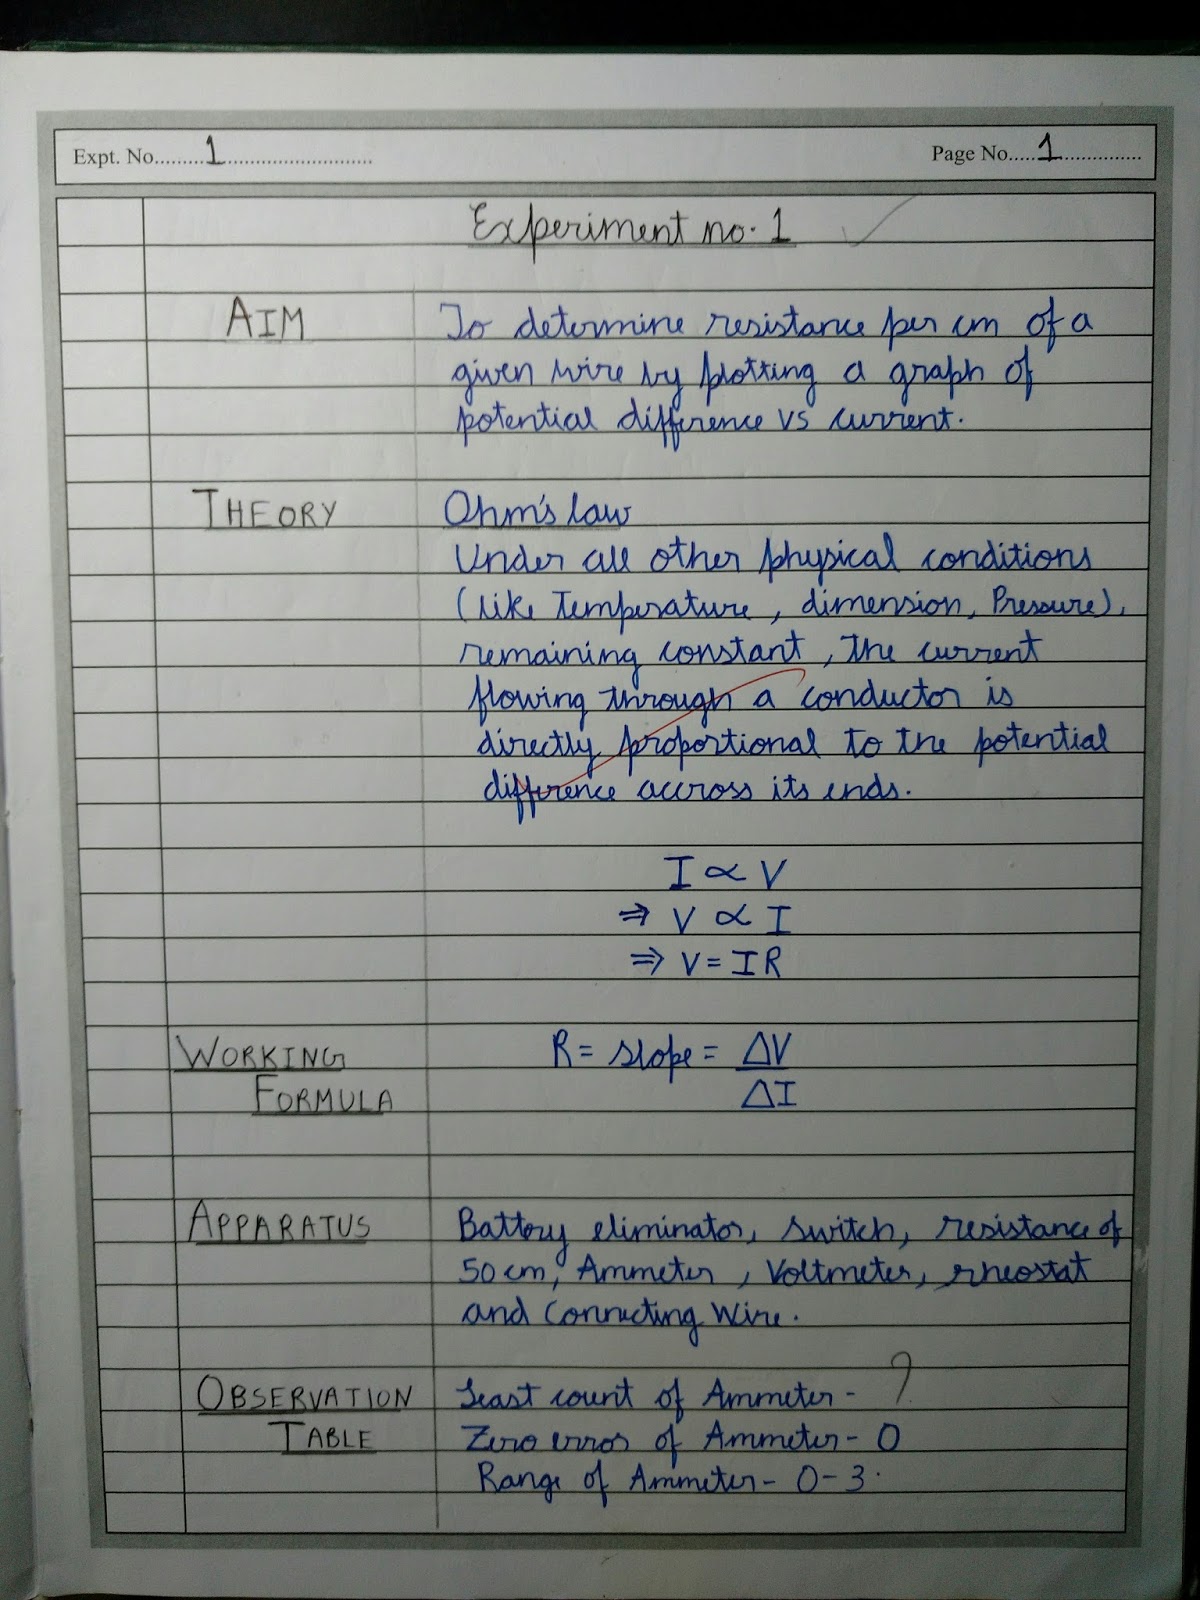 Expt. No.........1.............................
Page No.....1..............
Experiment no. 1
AIM
To determine resistance per cm of a
given wire by plotting a graph of
potential difference vs current.
THEORY
Ohm's law
Under all other physical conditions
(like Temperature, dimension, Pressure),
remaining constant, the current
flowing through a conductor is
directly proportional to the potential
difference accross its ends.
I ∝ V
⇒ V ∝ I
⇒ V = IR
WORKING
FORMULA
R = slope = ΔV
ΔI
APPARATUS
Battery eliminator, switch, resistance of
50 cm, Ammeter, Voltmeter, rheostat
and Connecting Wire.
OBSERVATION
TABLE
Least count of Ammeter - ?
Zero error of Ammeter - 0
Range of Ammeter - 0 - 3.